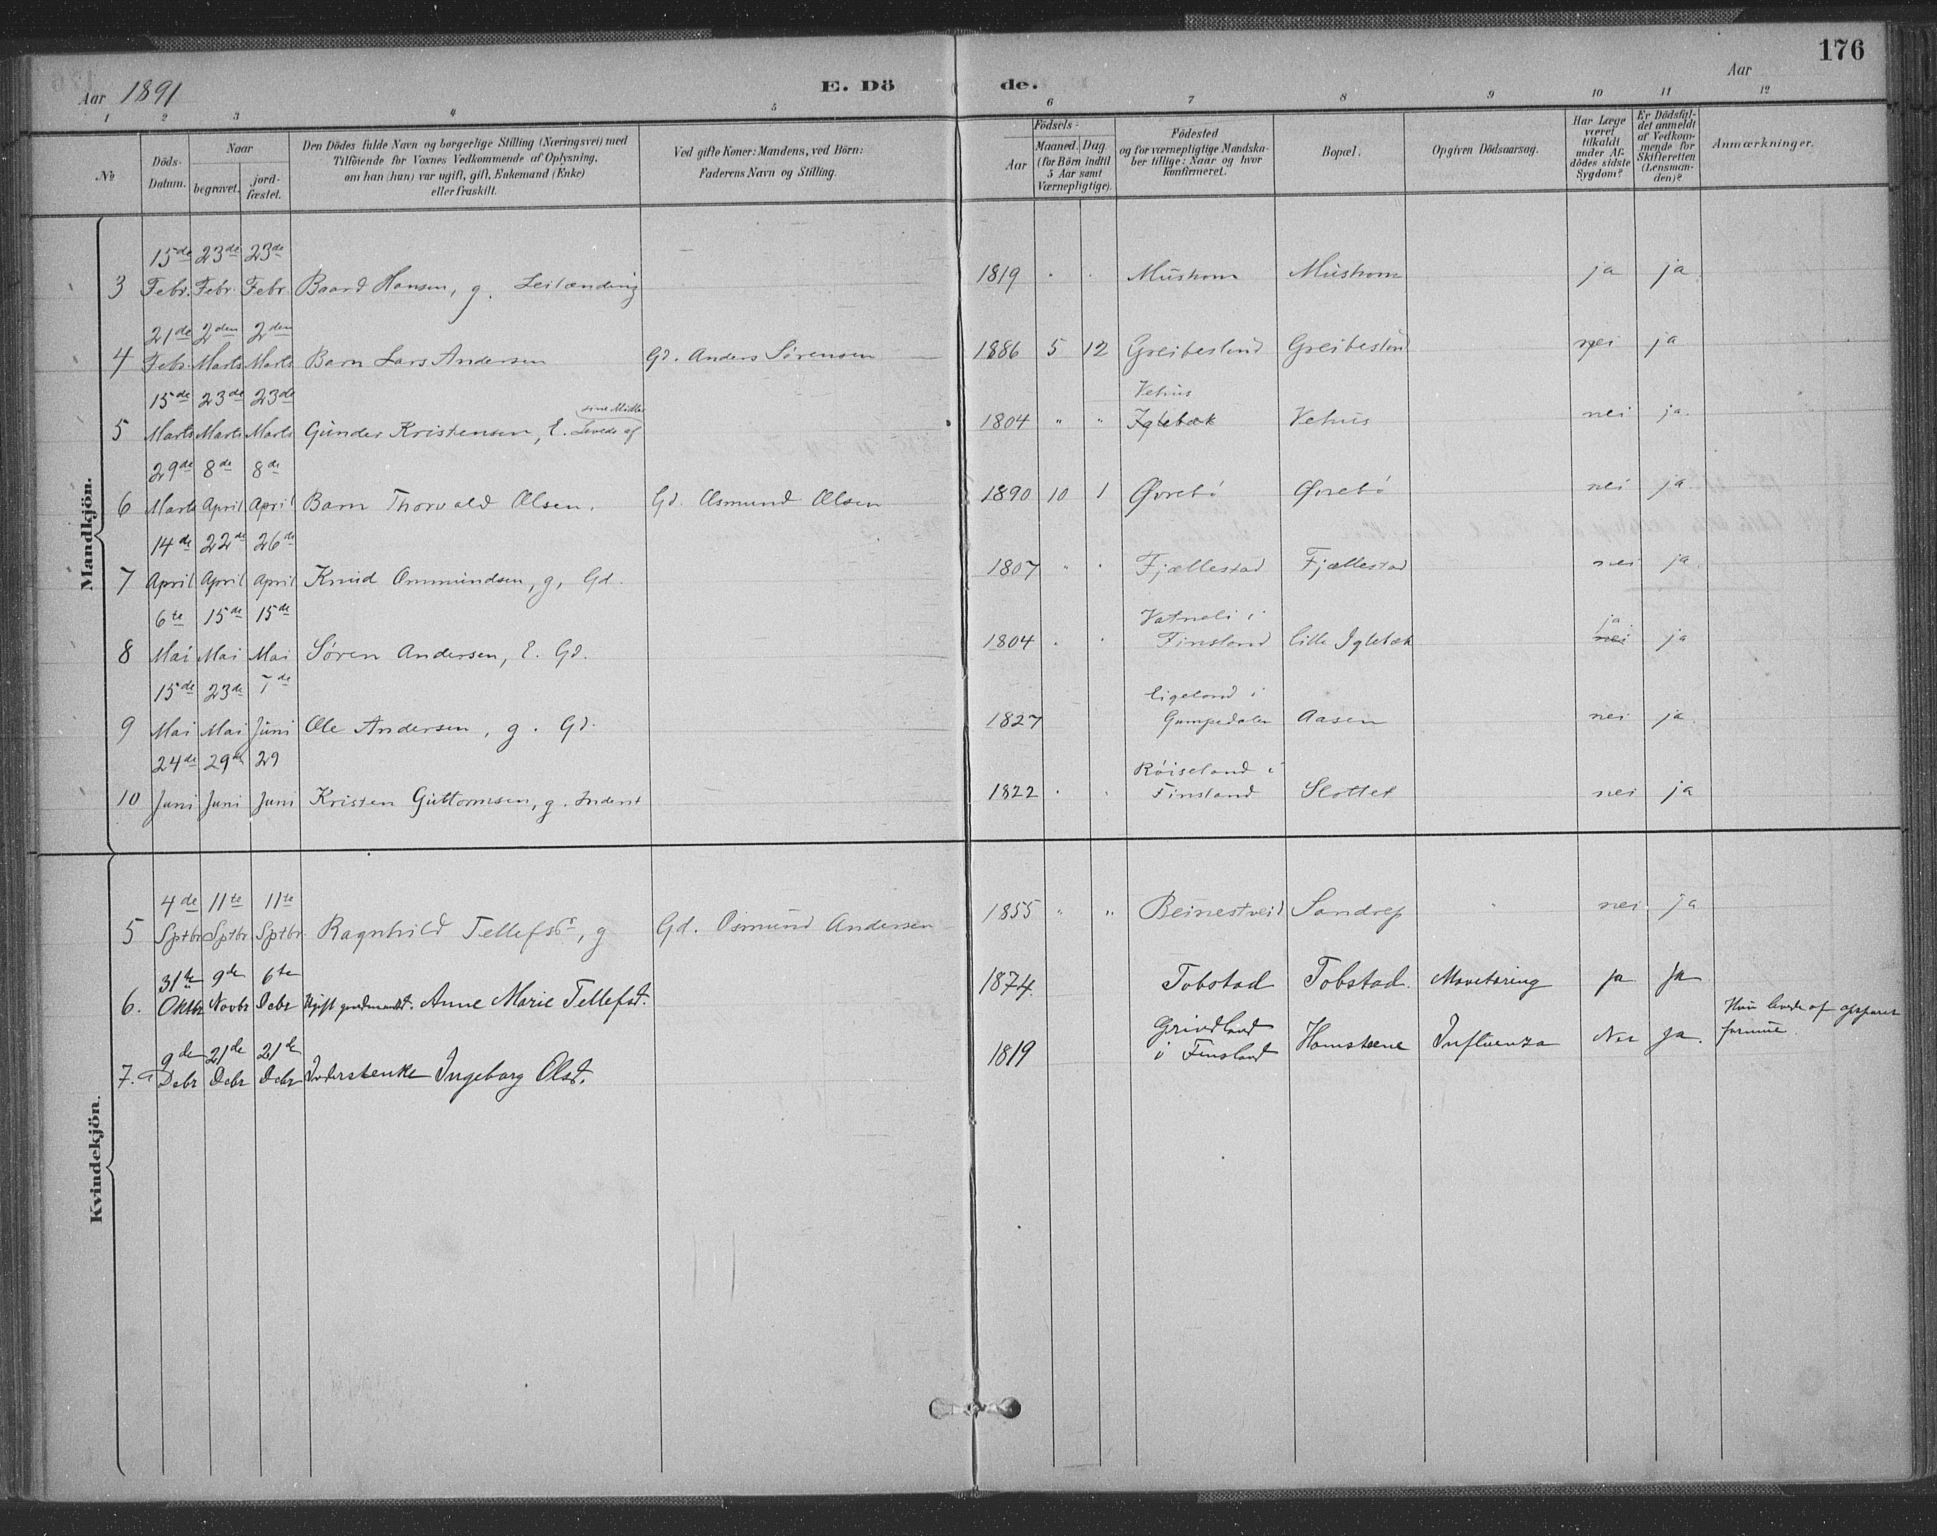 176
Aar 1891 E. Dö de. Aar
1 2 3 4 5 6 7 8 9 10 11 12
№
Döds-Datum.
Naar
begravet.
jord-fæstet.
Den Dödes fulde Navn og borgerlige Stilling (Næringsvei) med
Tilföiende for Voxnes Vedkommende af Oplysning,
om han (hun) var ugift, gift, Enkemand (Enke)
eller fraskilt.
Ved gifte Koner: Mandens, ved Börn:
Faderens Navn og Stilling.
Födsels-
Aar
Maaned. Dag
(for Börn indtil
5 Aar samt
Værnepligtige).
Födested
og for værnepligtige Mandska-
ber tillige: Naar og hvor
konfirmeret.
Bopæl.
Opgiven Dödsaarsag.
Har Læge
været
tilkaldt
under Af-
dödes sidste
Sygdom?
Er Dödsfal-
det anmeldt
af Vedkom-
mende for
Skifteretten
(Lensman-
den)?
Anmærkninger.
Mandkjön.
15de 23de 23de
3 Febr. Febr. Febr. Baard Hansen, g. Leilænding 1819 Muskom Muskom ja ja
21de 2den 2den
4 Febr. Marts Marts Barn Lars Andersen Gd. Anders Sørensen 1886 5 12 Greibesland Greibesland nei ja
15de 23de 23de sine Midler Vehus
5 Marts Marts Marts Gunder Kristensen, E. Levede af 1804 " " Iglebæk Vehus nei ja
29de 8de 8de
6 Marts April April Barn Thorvald Olsen. Gd. Osmund Olsen 1890 10 1 Øvrebö Øvrebö nei ja
14de 22de 26de
7 April April April Knud Ommundsen, g. Gd. 1807 " " Fjællestad Fjællestad nei ja
6te 15de 15de Vatneli i ja
8 Mai Mai Mai Søren Andersen, E. Gd. 1804 Finsland Lille Iglebæk nei ja
15de 23de 7de Eigeland i
9 Mai Mai Juni Ole Andersen, g. Gd. 1827 Gumpedalen Aasen nei ja
24de 29de 29 Röiseland i
10 Juni Juni Juni Kristen Guttormsen, g. Inderst 1822 Finsland Slottet nei ja
Kvindekjön.
4de 11te 11te
5 Sptbr Sptbr Sptbr Ragnhild Tellefsd., g Gd. Osmund Andersen 1855 " " Beinestveid nei ja
31te 9de 6te
6. Oktbr Novbr Debr Anne Marie Tellefsd. 1874. Tobstad Tobstad. Mavetæring ja Ja
9de 21de 21de
7. Debr Debr Debr Inderstenke Ingeborg Olsd. 1819 i Finsland Influenza Nei ja.
Hun levede af opsparet
formue.